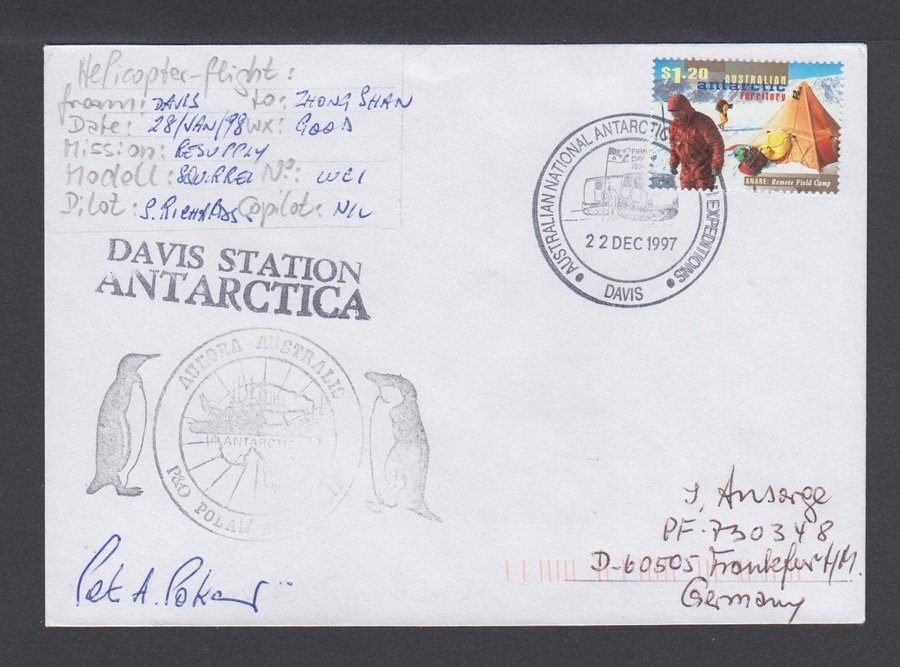 Helicopter-flight:
from: DAVIS to: ZHONG SHAN
Date: 28/JAN/98 wx: GOOD
Mission: RESUPPLY
Modell: SQUIRREL No: WCI
Pilot: S. RICHARDS. Copilot: NIL
$1.20 AUSTRALIAN
antarctic
Territory
ANARE: Remote Field Camp
AUSTRALIAN NATIONAL ANTARCTIC EXPEDITIONS
FIRST
DAY
22 DEC 1997
DAVIS
DAVIS STATION
ANTARCTICA
AURORA AUSTRALIS
ANTARCTIC
P&O POLAR
J. Ansorge
PF. 730348
D-60505 Frankfurt/M.
Germany